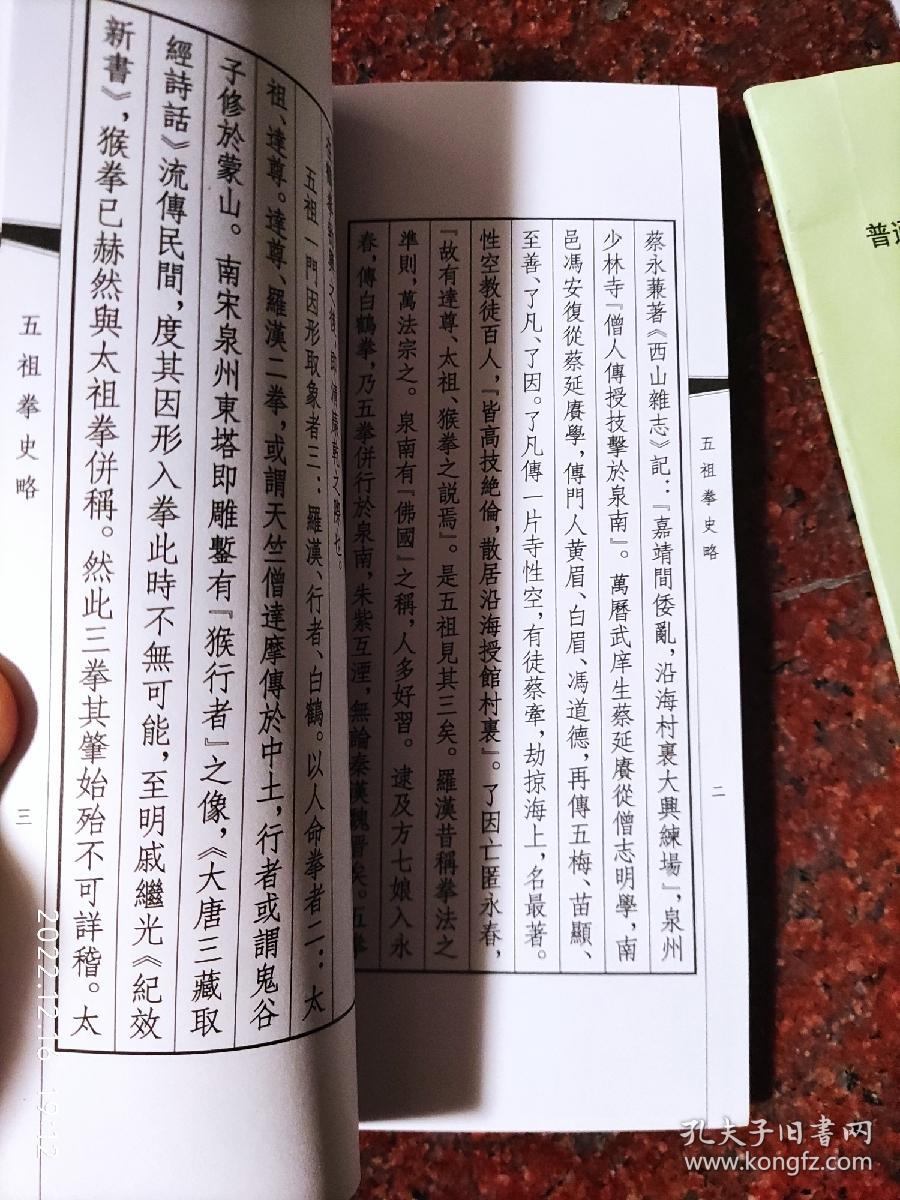 五祖拳史略
二
蔡永蒹著《西山雜志》記：『嘉靖間倭亂，沿海村裏大興練場』，泉州
少林寺『僧人傳授技擊於泉南』。萬曆武庠生蔡延賡從僧志明學，南
邑馮安復從蔡延賡學，傳門人黄眉、白眉、馮道德，再傳五梅、苗顯、
至善、了凡、了因。了凡傳一片寺性空，有徒蔡牽，劫掠海上，名最著。
性空教徒百人，『皆高技絶倫，散居沿海授館村裏』。了因亡匿永春，
『故有達尊、太祖、猴拳之説焉』。是五祖見其三矣。羅漢昔稱拳法之
準則，萬法宗之。泉南有『佛國』之稱，人多好習。逮及方七娘入永
春，傳白鶴拳，乃五拳併行於泉南，朱紫互湮，無論秦漢魏晋矣。五拳
五祖一門因形取象者三：羅漢、行者、白鶴。以人命拳者二：太
祖、達尊。達尊、羅漢二拳，或謂天竺僧達摩傳於中土，行者或謂鬼谷
子修於蒙山。南宋泉州東塔即雕鏨有『猴行者』之像，《大唐三藏取
經詩話》流傳民間，度其因形入拳此時不無可能，至明戚繼光《紀效
新書》，猴拳已赫然與太祖拳併稱。然此三拳其肇始殆不可詳稽。太
五祖拳史略
三
普通
2022.12.16 19:12
孔夫子旧书网
www.kongfz.com